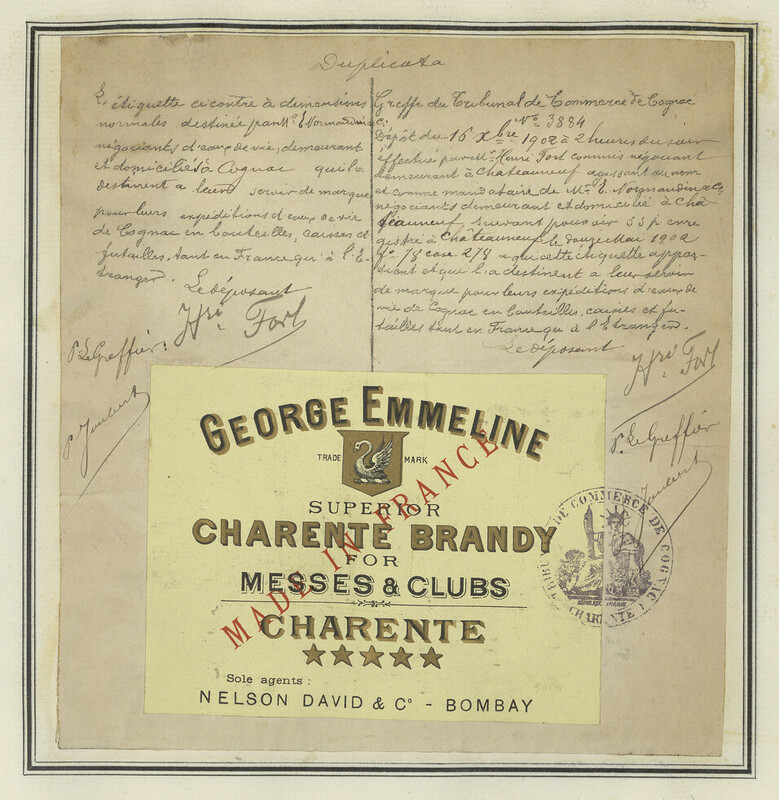 Duplicata
L'étiquette ci contre à dimensions
normales destinée par Mr. E. Normandin &
négociants d'eaux de vie, demeurant
et domiciliés à Cognac qu'il a
destinent a leur servir de marque
pour leurs expéditions d'eaux de vie
de Cognac en bouteilles, caisses et
futailles, tant en France qu'à l'E-
tranger.
Le déposant
Hri Fort
P. Le Greffier:
P. Joubert
Greffe du Tribunal de Commerce de Cognac
No 3884
Dépôt du 16 Xbre 1902 à 2 heures du soir
effectué par Mr. Henri Fort commis négociant
demeurant à Châteauneuf agissant au nom
et comme mandataire de Mr. E. Normandin & Co
négociants demeurant et domicilié à Châ-
teauneuf, suivant pouvoir s s p enre
gistré à Châteauneuf le douze Mai 1902
fo 78 case 278 a qui cette étiquette appar-
tient et qui l'a destinent a leur servir
de marque pour leurs expéditions d'eaux de
vie de Cognac en bouteilles, caisses et fu-
tailles tant en France qu'à l'Etranger.
Le déposant
Hri Fort
P. Le Greffier
Joubert
GEORGE EMMELINE
TRADE MARK
SUPERIOR
CHARENTE BRANDY
FOR
MESSES & CLUBS
CHARENTE
MADE IN FRANCE
Sole agents :
NELSON DAVID & Co - BOMBAY
TRIBUNAL DE COMMERCE DE COGNAC
CHARENTE